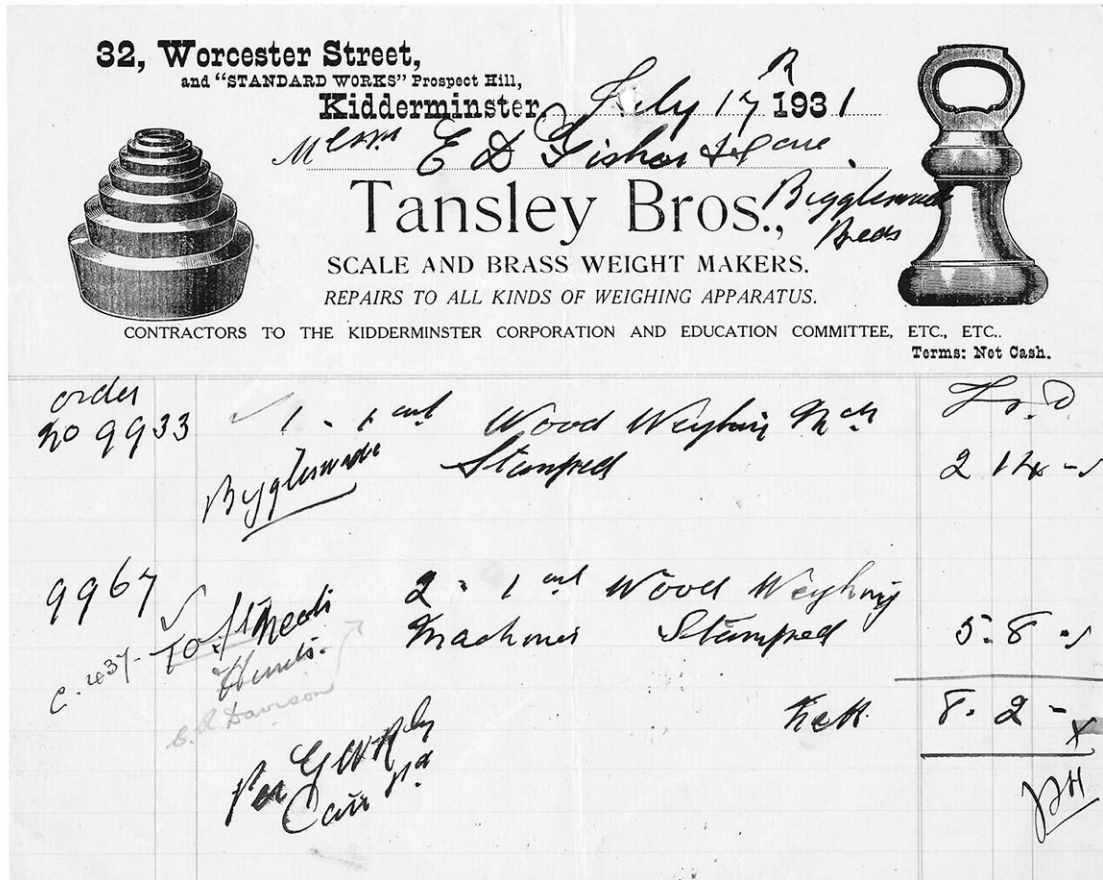 32, Worcester Street,
and "STANDARD WORKS" Prospect Hill,
Kidderminster, July 17 1931
Messrs E D Fisher &
Tansley Bros., Biggleswade
Beds
SCALE AND BRASS WEIGHT MAKERS.
REPAIRS TO ALL KINDS OF WEIGHING APPARATUS.
CONTRACTORS TO THE KIDDERMINSTER CORPORATION AND EDUCATION COMMITTEE, ETC., ETC..
Terms: Net Cash.
order £ s. D
no 9933 1 - 1 cwt Wood Weighing Mch
Stamped 2 14 -
Biggleswade
9967 2 - 1 cwt Wood Weighing
To St Neots Machines Stamped 5. 8 -
Hunts.
C. R Davison
Nett 8. 2 -
Per G W Rly
Carr Pd